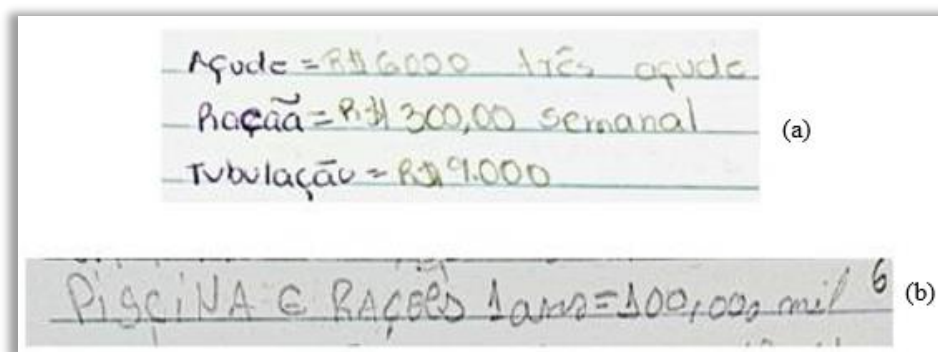 Açude = R$ 6000 três açude
Raçãã = R$ 300,00 semanal
Tubulação = R$ 9.000
(a)
PISCINA E RAÇÕES 1 ano = 100,000 mil 6
(b)